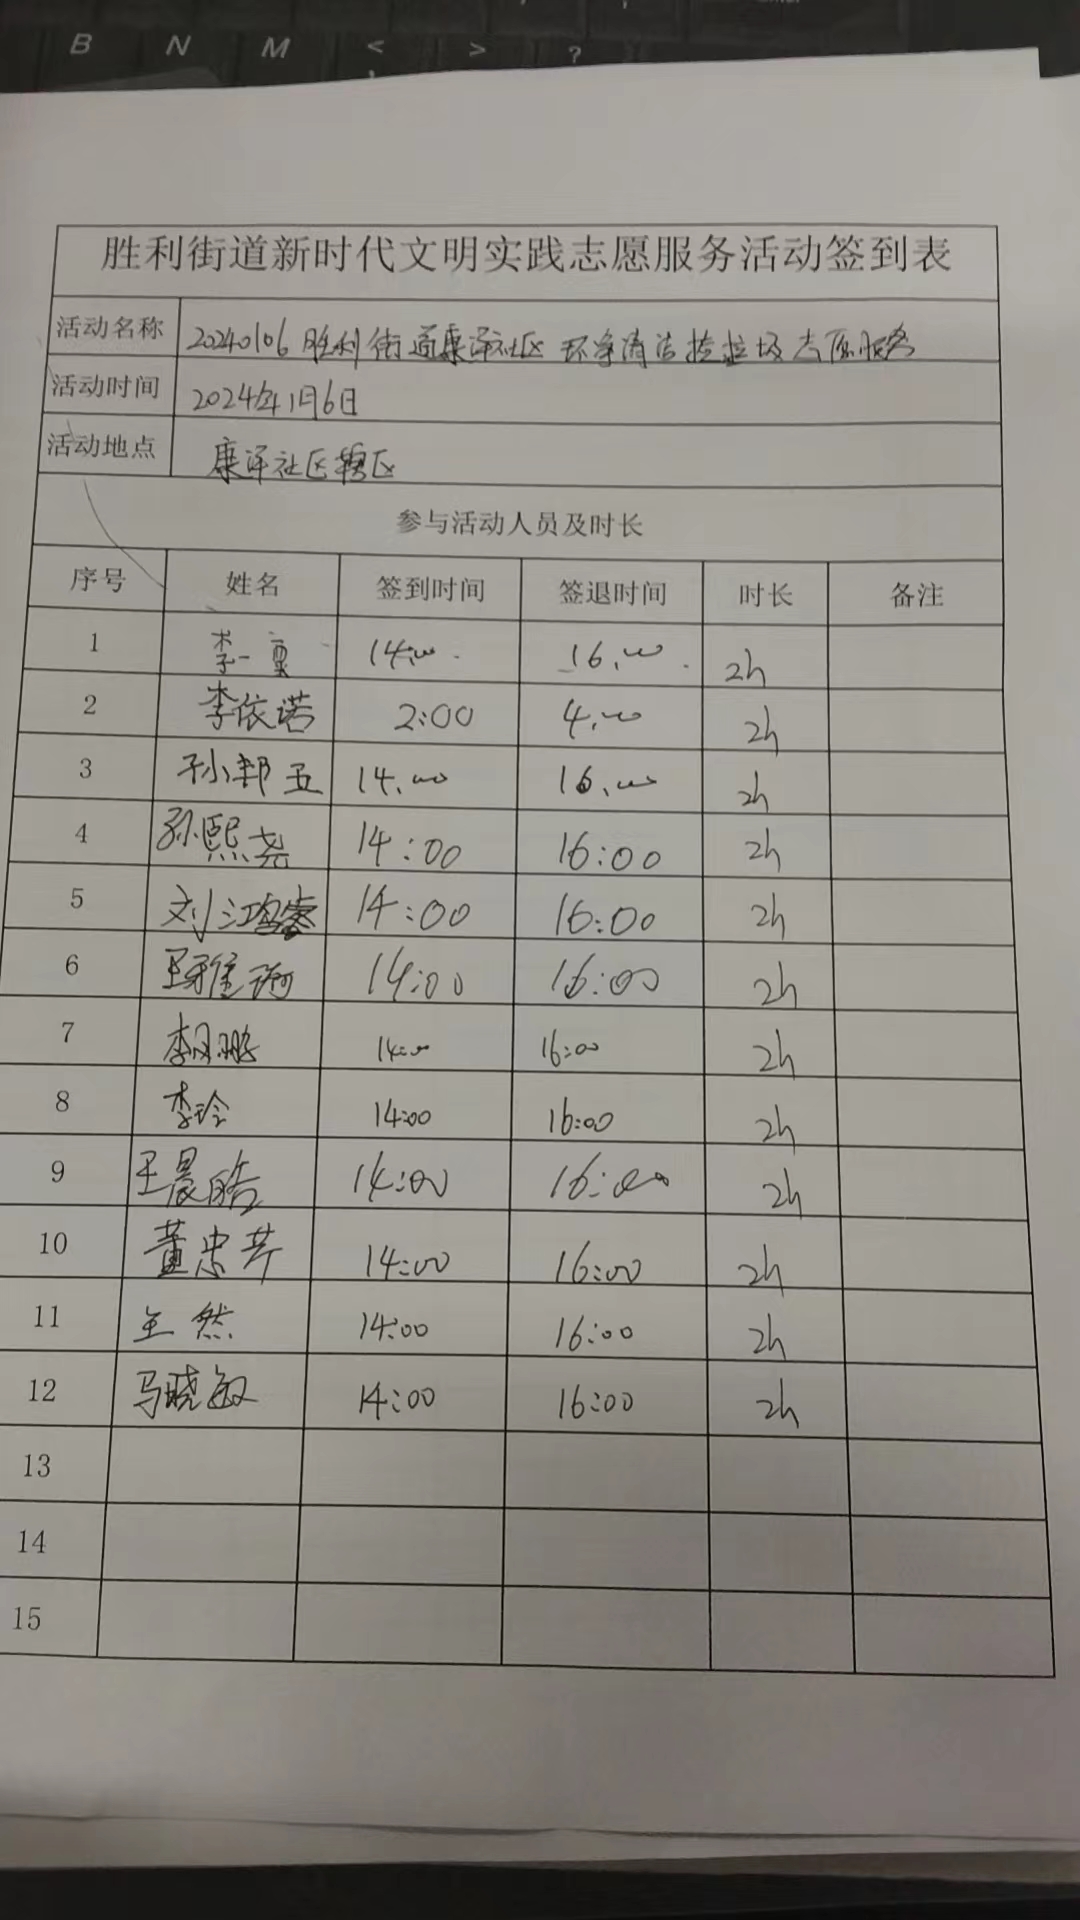 B N M < > ?
胜利街道新时代文明实践志愿服务活动签到表
活动名称 20240106 胜利街道康泽社区 环境清洁捡垃圾志愿服务
活动时间 2024年1月6日
活动地点 康泽社区辖区
参与活动人员及时长
序号 姓名 签到时间 签退时间 时长 备注
1 李一 14:00 16:00 2h
2 李依诺 2:00 4:00 2h
3 孙邦五 14:00 16:00 2h
4 孙熙尧 14:00 16:00 2h
5 刘鸿睿 14:00 16:00 2h
6 王雅 14:00 16:00 2h
7 李鹏 14:00 16:00 2h
8 李玲 14:00 16:00 2h
9 王晨皓 14:00 16:00 2h
10 董忠芹 14:00 16:00 2h
11 王然 14:00 16:00 2h
12 马晓敏 14:00 16:00 2h
13
14
15